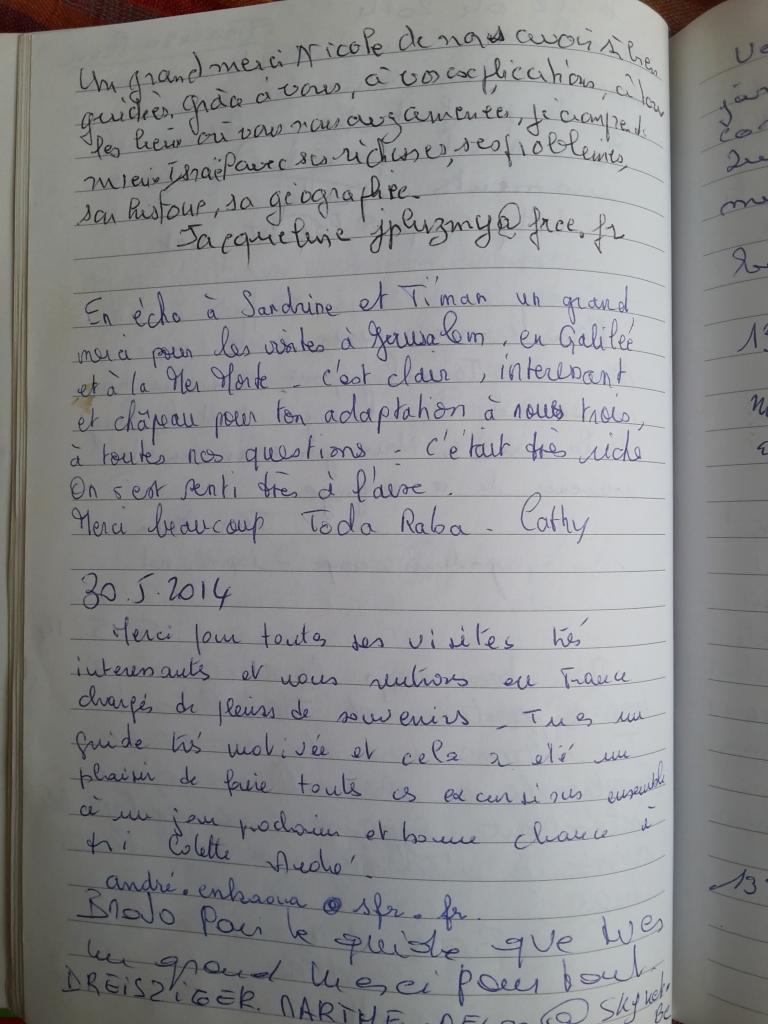 Un grand merci Nicole de nous avoir si bien
guidés, grâce à vous, à vos explications, à tous
les lieux où vous nous avez amenées, je comprends
mieux Israël avec ses richesses, ses problèmes,
son histoire, sa géographie.
Jacqueline @free.fr
En écho à Sandrine et Timan un grand
merci pour les visites à Jerusalem, en Galilée
et à la Mer Morte - c'est clair, interessant
et châpeau pour ton adaptation à nous trois,
à toutes nos questions - c'était très riche
On s'est senti très à l'aise.
Merci beaucoup Toda Raba - Cathy
30.5.2014
Merci pour toutes ses visites très
interessants et nous rentrons en France
chargés de pleins de souvenirs - Tu es un
guide très motivée et cela a été un
plaisir de faire toutes ces excursions ensemble
à un jour prochain et bonne chance à
toi Colette André.
andré.enkaoua@sfr.fr
Bravo pour le guide que tu es
un grand merci pour tout
DREISZIGER. MARTHE @ skynet.
BE